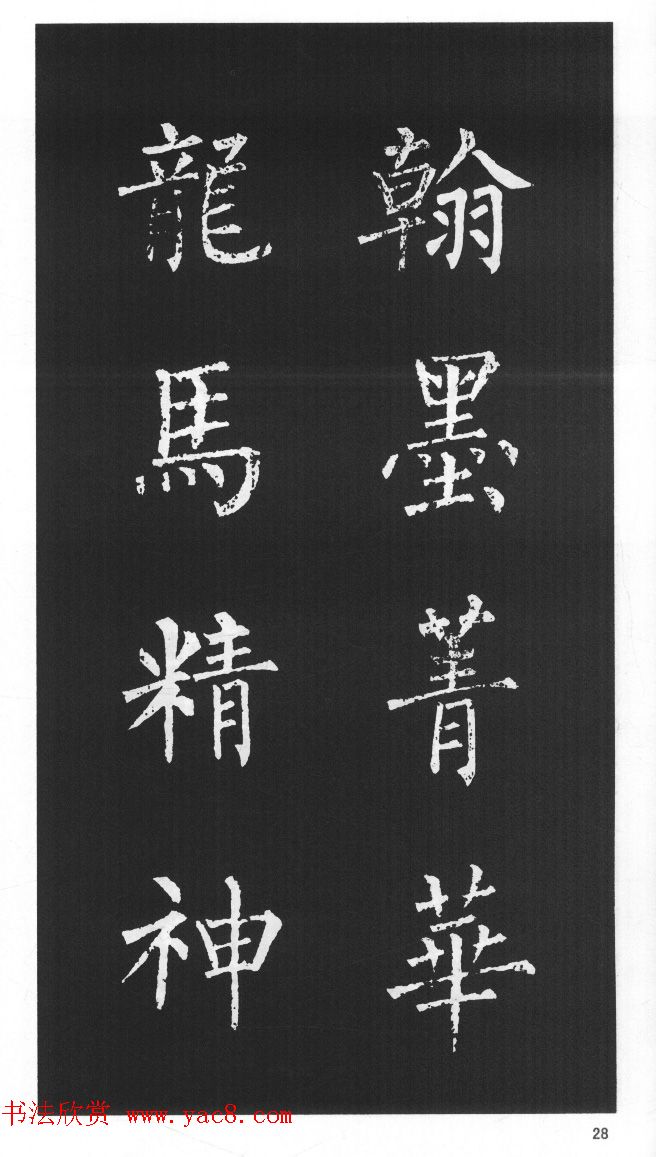 翰墨菁華
龍馬精神
书法欣赏 www.yac8.com
28